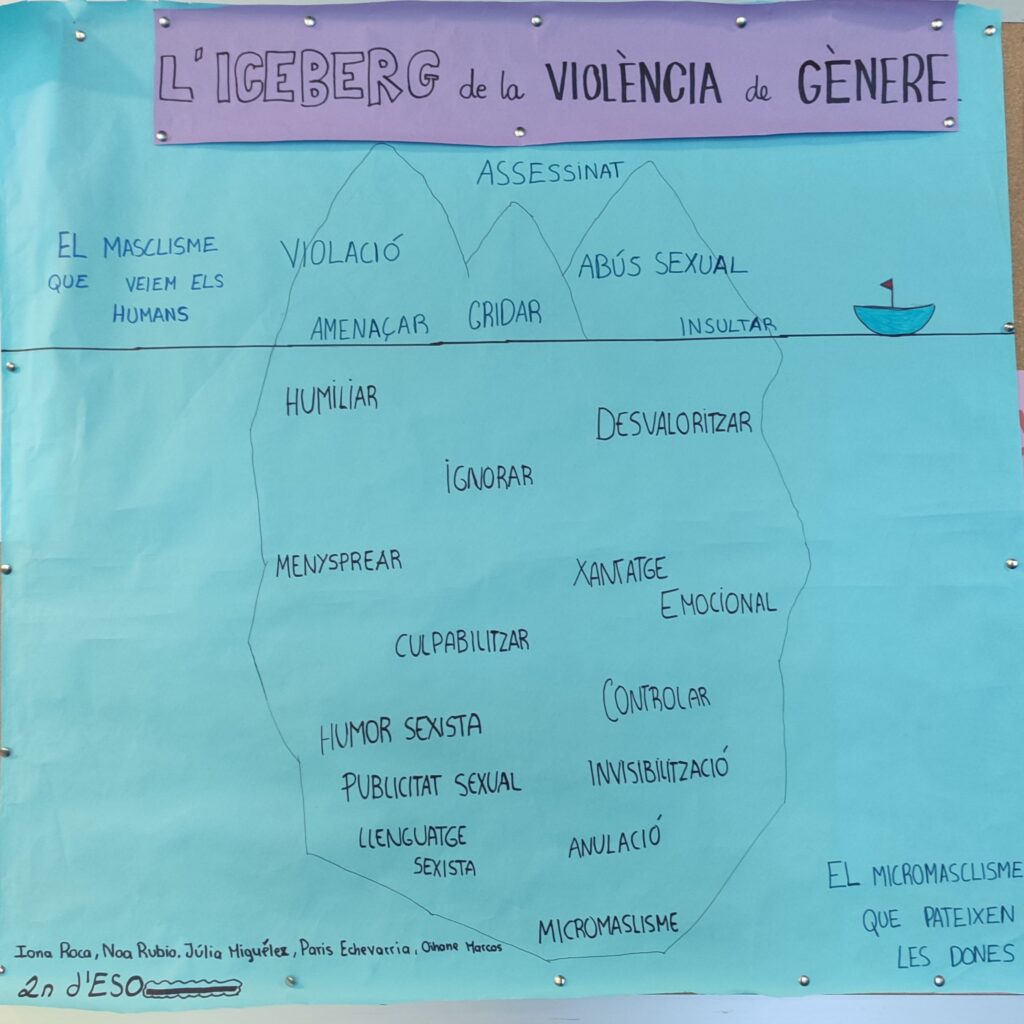 L'ICEBERG de la VIOLÈNCIA de GÈNERE.
ASSESSINAT
EL MASCLISME
QUE VEIEM ELS
HUMANS
VIOLACIÓ
ABÚS SEXUAL
AMENAÇAR
GRIDAR
INSULTAR
HUMILIAR
DESVALORITZAR
IGNORAR
MENYSPREAR
XANTATGE
EMOCIONAL
CULPABILITZAR
CONTROLAR
HUMOR SEXISTA
PUBLICITAT SEXUAL
INVISIBILITZACIÓ
LLENGUATGE
SEXISTA
ANULACIÓ
MICROMASLISME
EL MICROMASCLISME
QUE PATEIXEN
LES DONES
Iona Roca, Noa Rubio. Júlia Miguélez, Paris Echevarria, Oihane Marcos
2n d'ESO